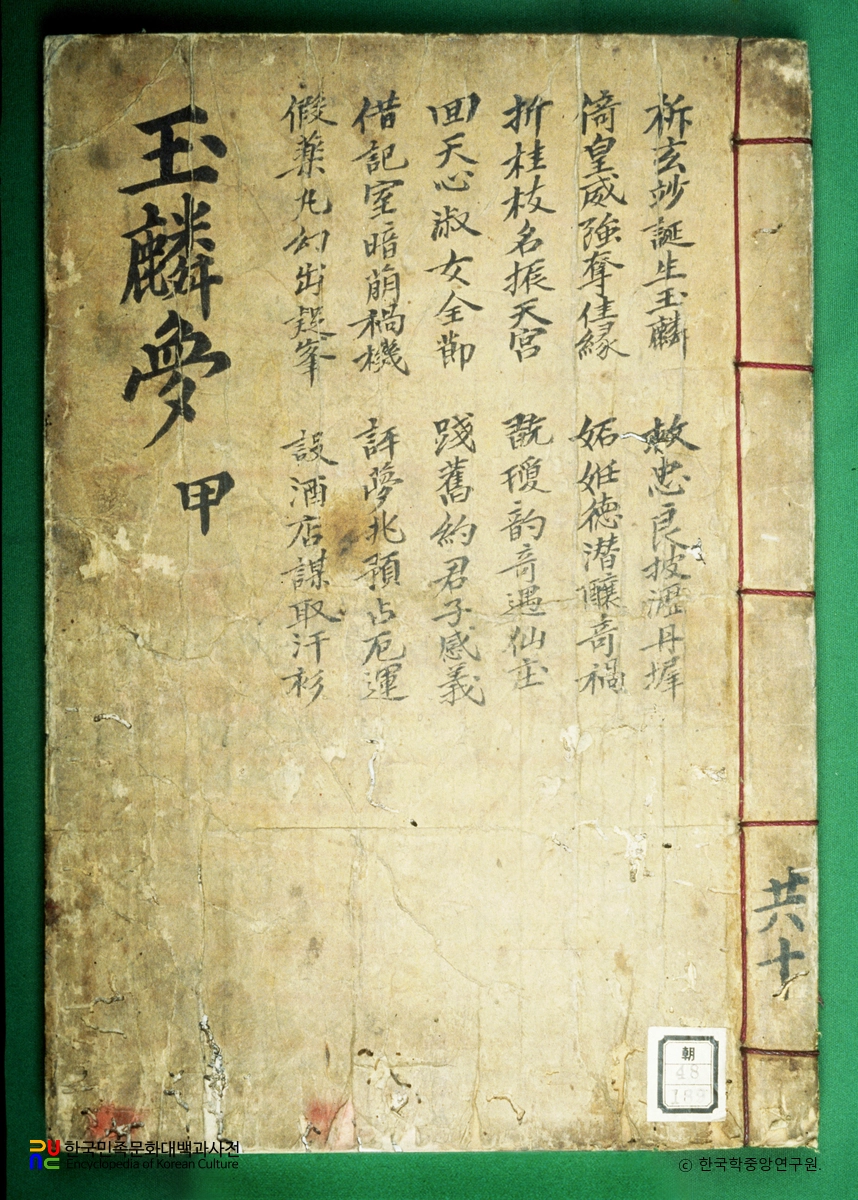 祈玄竗誕生玉麟 救忠良披瀝丹墀
倚皇威強奪佳緣 妬姙徳潜釀竒禍
折桂枝名振天宮 翫瓊韵竒遇仙庄
回天心淑女全節 踐舊約君子感義
借記室暗萠禍機 評夢兆預占厄運
假藥丸幻出疑峯 設酒店謀取汗衫
玉麟夢 甲
共十
朝
48
한국민족문화대백과사전
Encyclopedia of Korean Culture
© 한국학중앙연구원.